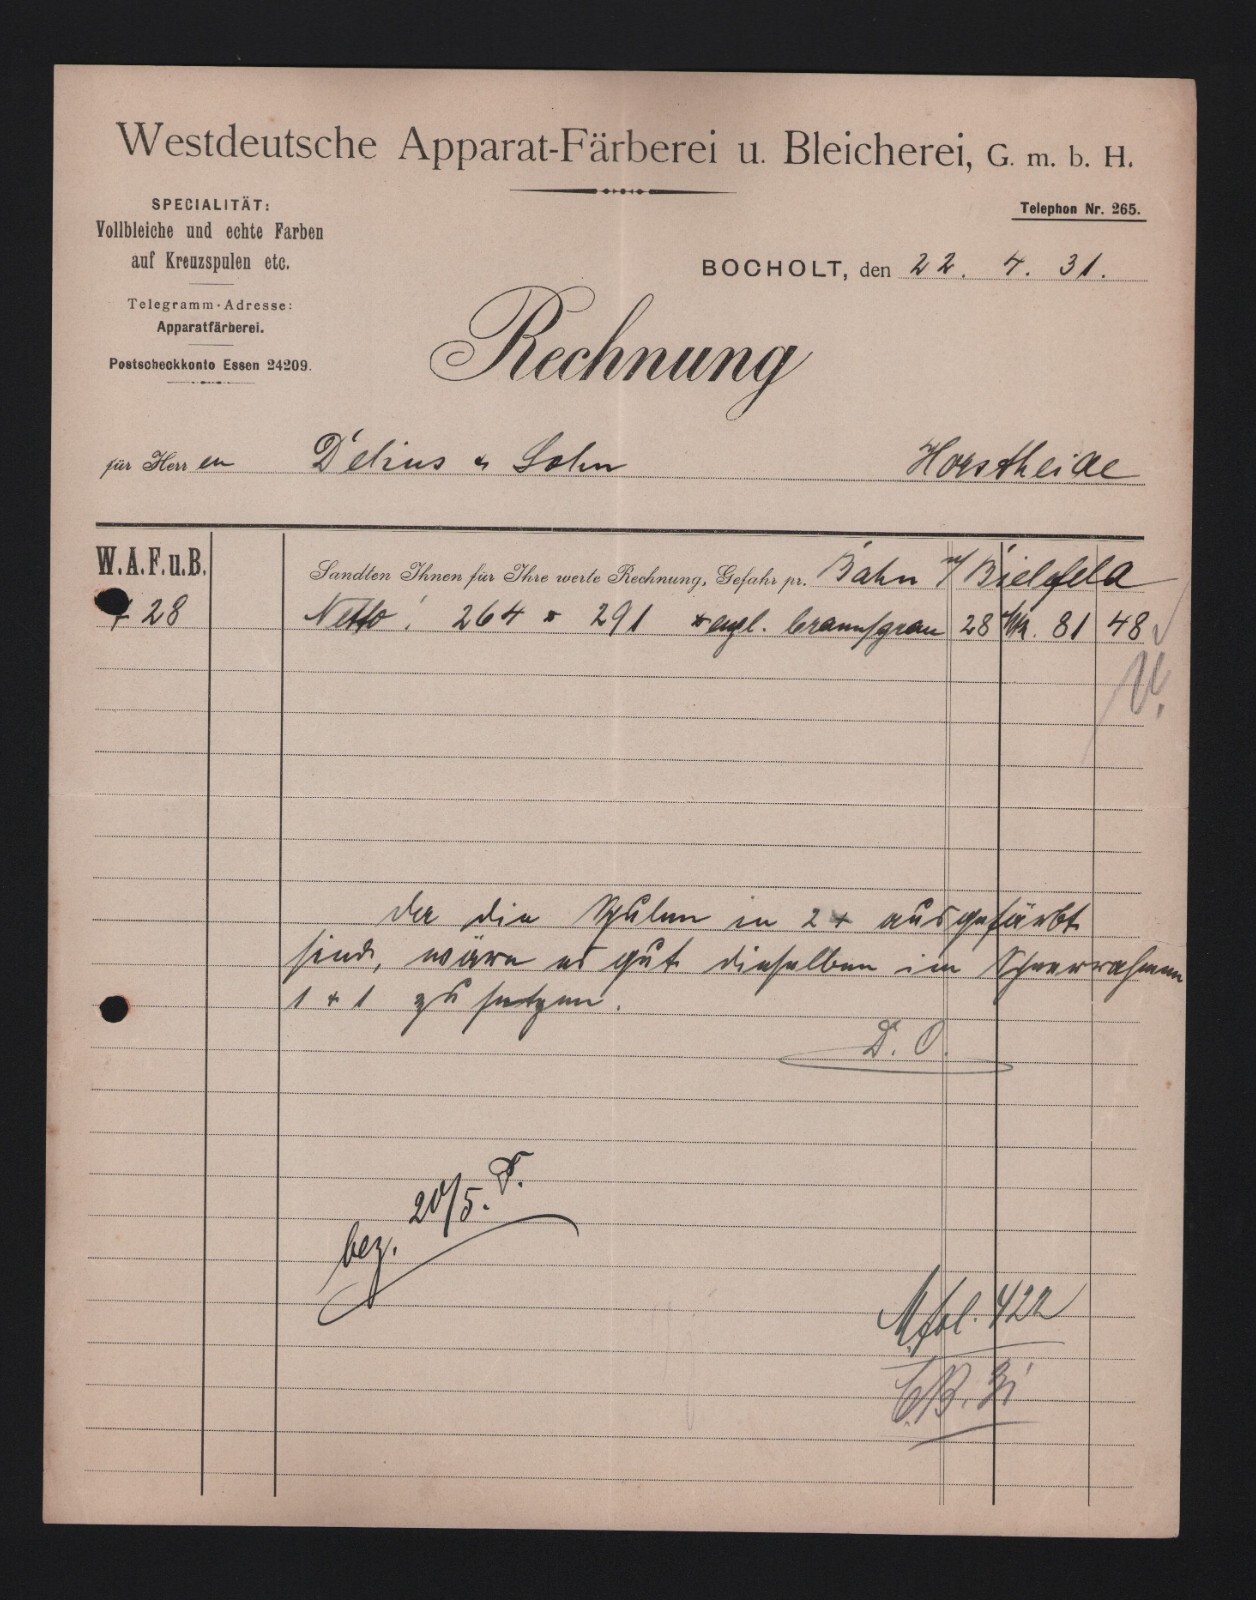 Westdeutsche Apparat-Färberei u. Bleicherei, G. m. b. H.
SPECIALITÄT:
Vollbleiche und echte Farben
auf Kreuzspulen etc.
Telegramm-Adresse:
Apparatfärberei.
Postscheckkonto Essen 24209.
Telephon Nr. 265.
BOCHOLT, den 22. 4. 31.
Rechnung
für Herren Delius & Sohn Horstheide
W.A.F.u.B.
Sandten Ihnen für Ihre werte Rechnung, Gefahr pr. Bahn n/ Bielefeld
28 Netto: 264 291 engl. braun/grau 28 81 48
Da die Spulen in 2 x ausgefärbt
sind, wäre es gut dieselben im Scherrahmen
1 + 1 zu setzen.
D. O.
bez. 20/5.
M. fol. 422